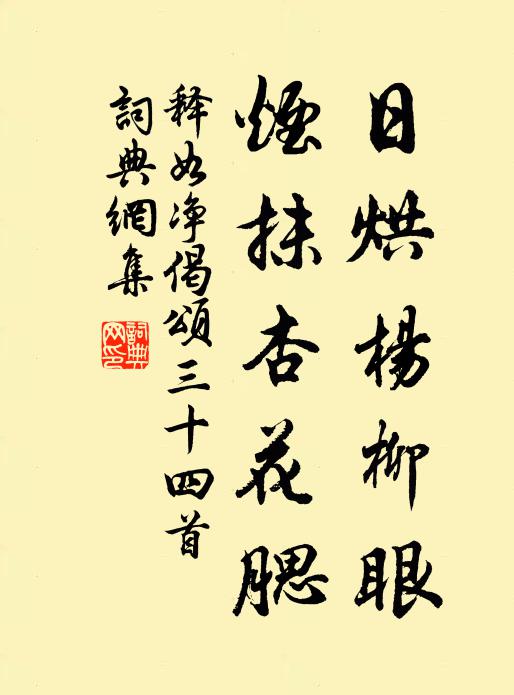 日烘楊柳眼
煙抹杏花腮
释如净偈頌三十四首
詞典網集
詞典網印